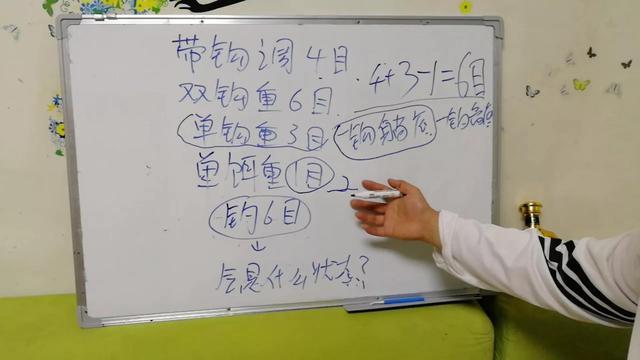 带钩调4目
4+3-1=6目
双钩重6目
单钩重3目
一钩躺底 一钩离底
单饵重1目
2
钓6目
↓
是什么状态?